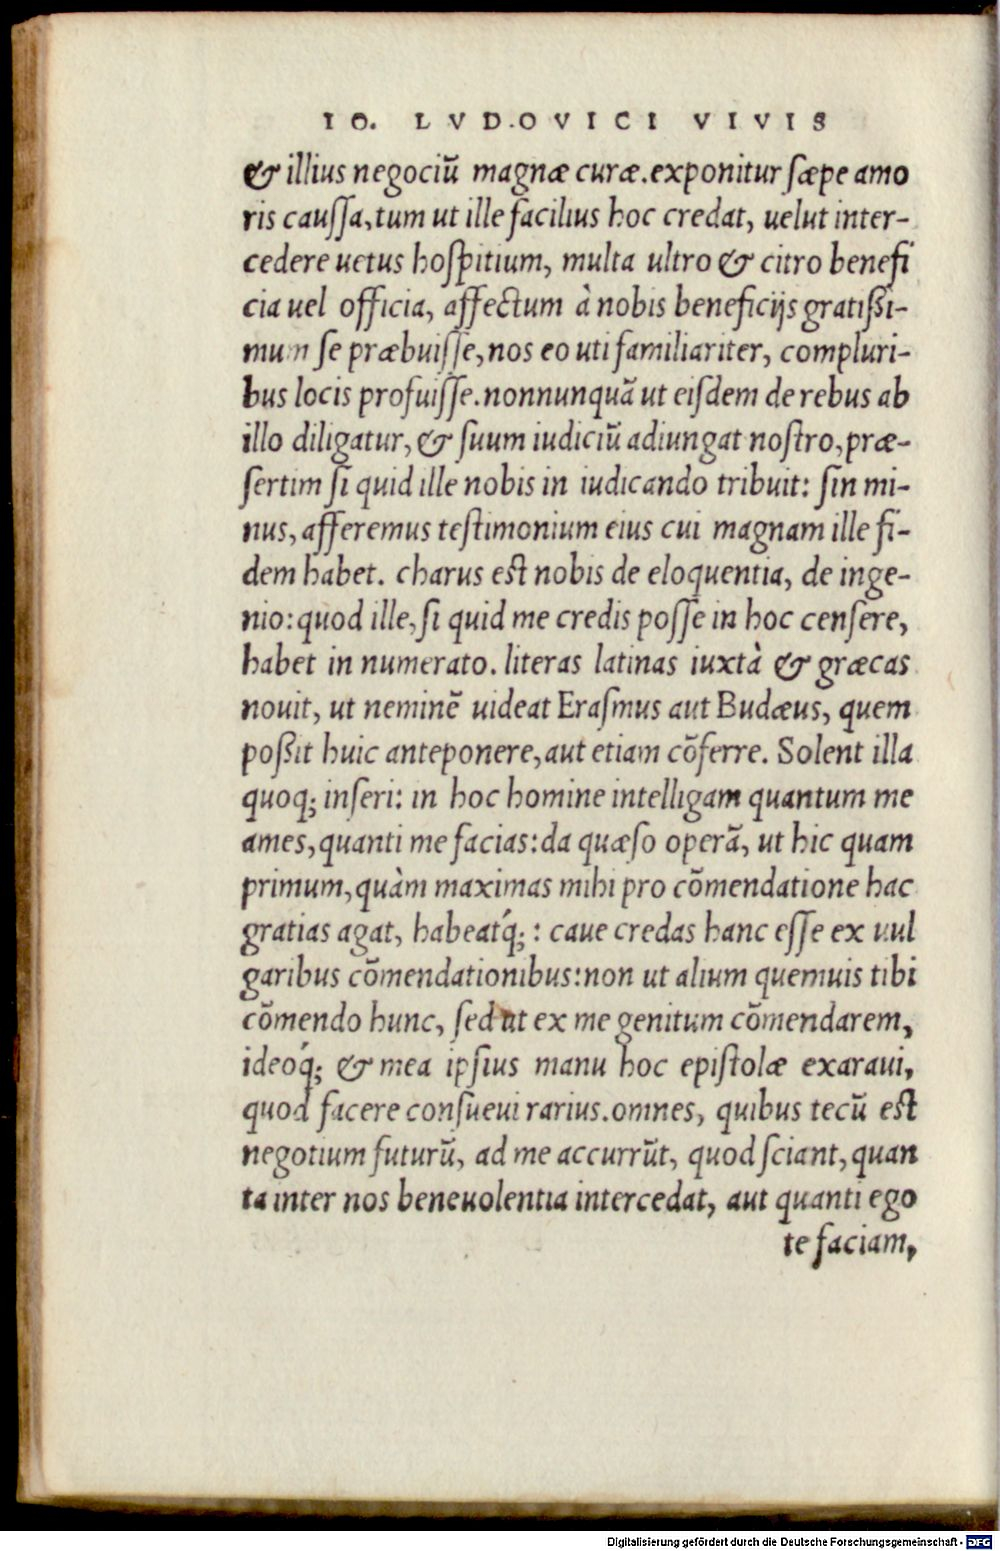 IO. LVDOVICI VIVIS
& illius negociũ magnæ curæ. exponitur sæpe amo
ris caussa, tum ut ille facilius hoc credat, uelut inter-
cedere uetus hospitium, multa ultro & citro benefi
cia uel officia, affectum à nobis beneficijs gratißi-
mum se præbuisse, nos eo uti familiariter, compluri-
bus locis profuisse. nonnunquã ut eisdem de rebus ab
illo diligatur, & suum iudiciũ adiungat nostro, præ-
sertim si quid ille nobis in iudicando tribuit: sin mi-
nus, afferemus testimonium eius cui magnam ille fi-
dem habet. charus est nobis de eloquentia, de inge-
nio: quod ille, si quid me credis posse in hoc censere,
habet in numerato. literas latinas iuxtà & græcas
nouit, ut neminẽ uideat Erasmus aut Budæus, quem
poßit huic anteponere, aut etiam cõferre. Solent illa
quoq; inseri: in hoc homine intelligam quantum me
ames, quanti me facias: da quæso operã, ut hic quam
primum, quàm maximas mihi pro cõmendatione hac
gratias agat, habeatq́;: caue credas hanc esse ex uul
garibus cõmendationibus: non ut alium quemuis tibi
cõmendo hunc, sed ut ex me genitum cõmendarem,
ideoq́; & mea ipsius manu hoc epistolæ exaraui,
quod facere consueui rarius. omnes, quibus tecũ est
negotium futurũ, ad me accurrũt, quod sciant, quan
ta inter nos beneuolentia intercedat, aut quanti ego
te faciam,
Digitalisierung gefördert durch die Deutsche Forschungsgemeinschaft - DFG